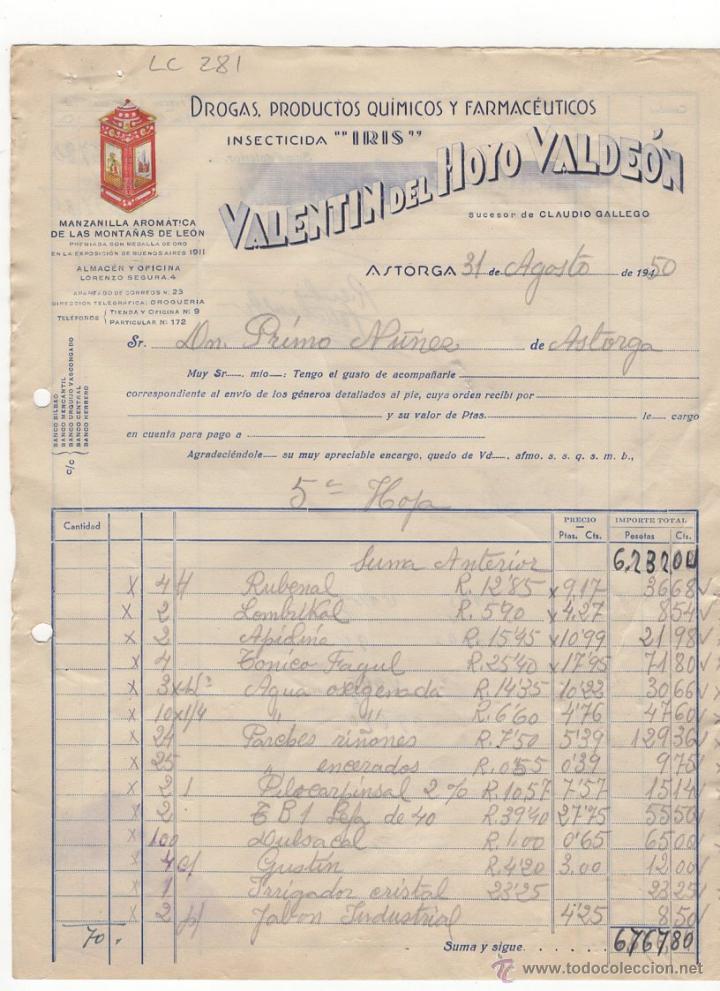 LC 281
DROGAS, PRODUCTOS QUÍMICOS Y FARMACÉUTICOS
INSECTICIDA "IRIS"
VALENTIN DEL HOYO VALDEÓN
Sucesor de CLAUDIO GALLEGO
MANZANILLA AROMÁTICA
DE LAS MONTAÑAS DE LEÓN
PREMIADA CON MEDALLA DE ORO
EN LA EXPOSICIÓN DE BUENOS AIRES 1911
ALMACÉN Y OFICINA
LORENZO SEGURA, 4
APARTADO DE CORREOS N.º 23
DIRECCIÓN TELEGRÁFICA: DROGUERIA
TELÉFONOS { TIENDA Y OFICINA Nº 9
PARTICULAR Nº 172
ASTORGA 31 de Agosto de 1950
Sr. Dn. Primo Núñez de Astorga
Muy Sr. mío: Tengo el gusto de acompañarle
correspondiente al envío de los géneros detallados al pie, cuya orden recibí por
y su valor de Ptas. le cargo
en cuenta para pago a
Agradeciéndole su muy apreciable encargo, quedo de Vd. afmo. s. s. q. s. m. b.,
c/c { BANCO BILBAO
BANCO MERCANTIL
BANCO URQUIJO VASCONGADO
BANCO CENTRAL
BANCO HERRERO
5ª Hoja
Cantidad PRECIO Ptas. Cts. IMPORTE TOTAL Pesetas Cts.
Suma Anterior 6.232 00
x 4 H Rubenal R. 12'85 x 9,17 36 68
x 2 Lombrikal R. 5'90 x 4,27 8 54
x 2 Apidina R. 15'45 x 10'99 21 98
x 4 Tonico Fagul R. 25'40 x 17'95 71 80
x 3 x Agua oxigenada R. 14'35 10'22 30 66
x 10 x 1/4 " " R. 6'60 4'76 47 60
x 24 Parches riñones R. 7'50 5'39 129 36
x 25 " encerados R. 0'55 0'39 9 75
x 2 1 Pilocarpinsal 2 % R. 10,57 7'57 15 14
x 2 T B 1 de 40 R. 39'40 27'75 55 50
x 100 Dulsacal R. 1,00 0'65 65 00
x 4 c/ Gustín R. 4'20 3,00 12 00
x 1 Irrigador cristal 23'25 23 25
x 2 p/ Jabon Industrial 4'25 8 50
70.
Suma y sigue 6767 80
www.todocoleccion.net